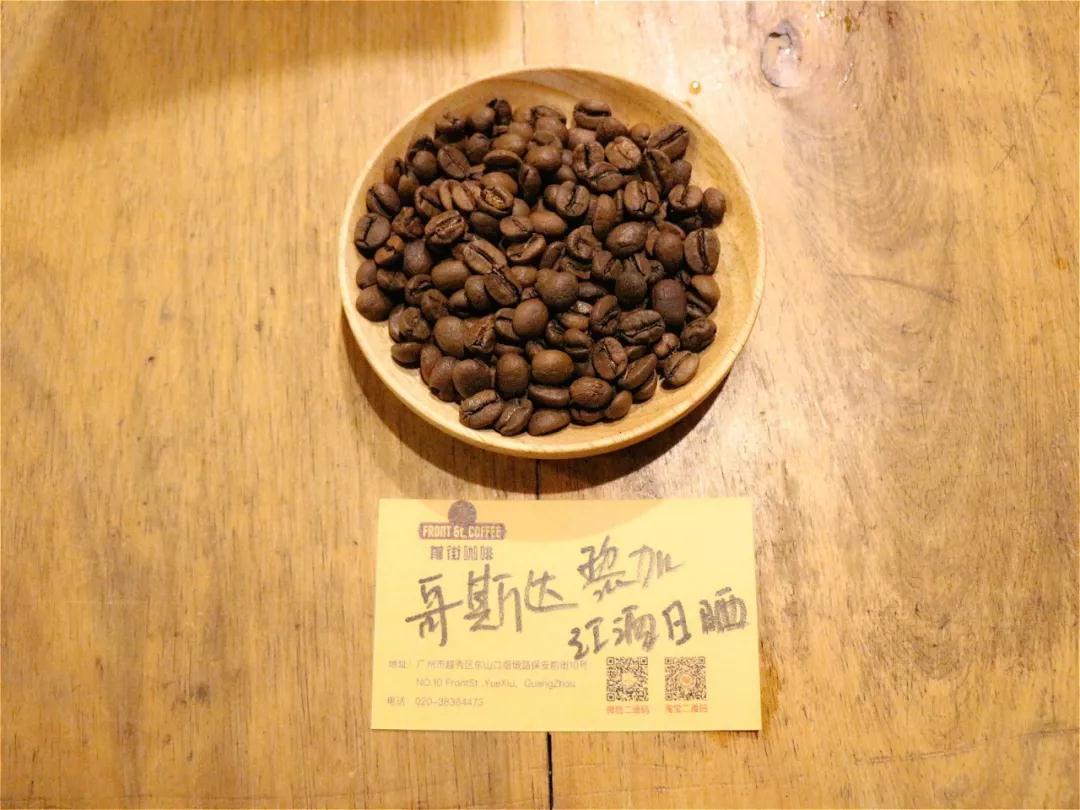 FRONT St. COFFEE
前街咖啡
哥斯达黎加
红酒日晒
地址：广州市越秀区东山口烟墩路保安前街10号
NO.10 FrontSt ,YueXiu, GuangZhou
电话：020-38364473
微信二维码 淘宝二维码